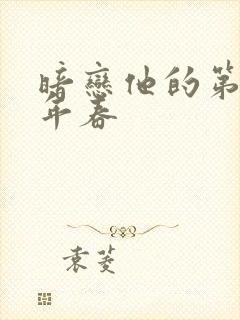 暗戀他的第
年春
袁菱